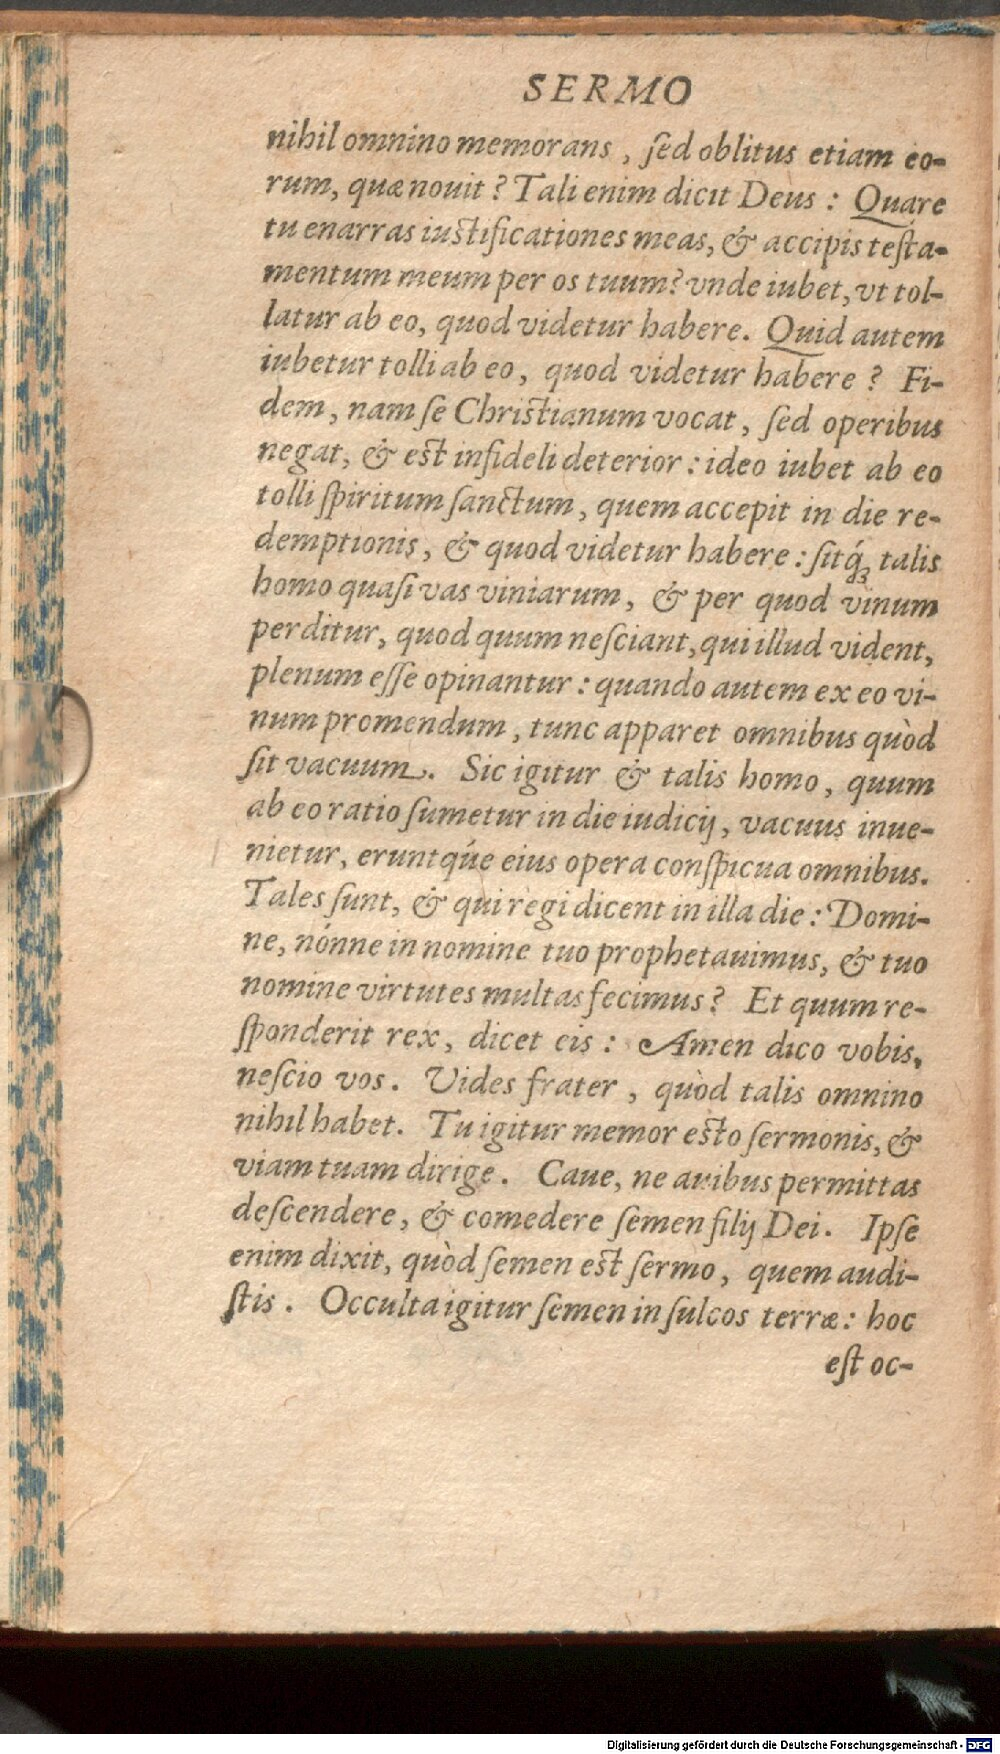 SERMO
nihil omnino memorans, ſed oblitus etiam eo-
rum, quæ nouit? Tali enim dicit Deus: Quare
tu enarras iuſtificationes meas, & accipis teſta-
mentum meum per os tuum? vnde iubet, vt tol-
latur ab eo, quod videtur habere. Quid autem
iubetur tolli ab eo, quod videtur habere? Fi-
dem, nam ſe Chriſtianum vocat, ſed operibus
negat, & eſt infideli deterior: ideo iubet ab eo
tolli ſpiritum ſanctum, quem accepit in die re-
demptionis, & quod videtur habere: ſitq́ꝫ talis
homo quaſi vas viniarum, & per quod vinum
perditur, quod quum neſciant, qui illud vident,
plenum eſſe opinantur: quando autem ex eo vi-
num promendum, tunc apparet omnibus quòd
ſit vacuum. Sic igitur & talis homo, quum
ab eo ratio ſumetur in die iudicij, vacuus inue-
nietur, eruntq́ue eius opera conſpicua omnibus.
Tales ſunt, & qui regi dicent in illa die: Domi-
ne, nónne in nomine tuo prophetauimus, & tuo
nomine virtutes multas fecimus? Et quum re-
ſponderit rex, dicet eis: Amen dico vobis,
neſcio vos. Vides frater, quòd talis omnino
nihil habet. Tu igitur memor eſto ſermonis, &
viam tuam dirige. Caue, ne auibus permittas
deſcendere, & comedere ſemen filij Dei. Ipſe
enim dixit, quòd ſemen eſt ſermo, quem audi-
ſtis. Occulta igitur ſemen in ſulcos terræ: hoc
eſt oc-
Digitalisierung gefördert durch die Deutsche Forschungsgemeinschaft - DFG